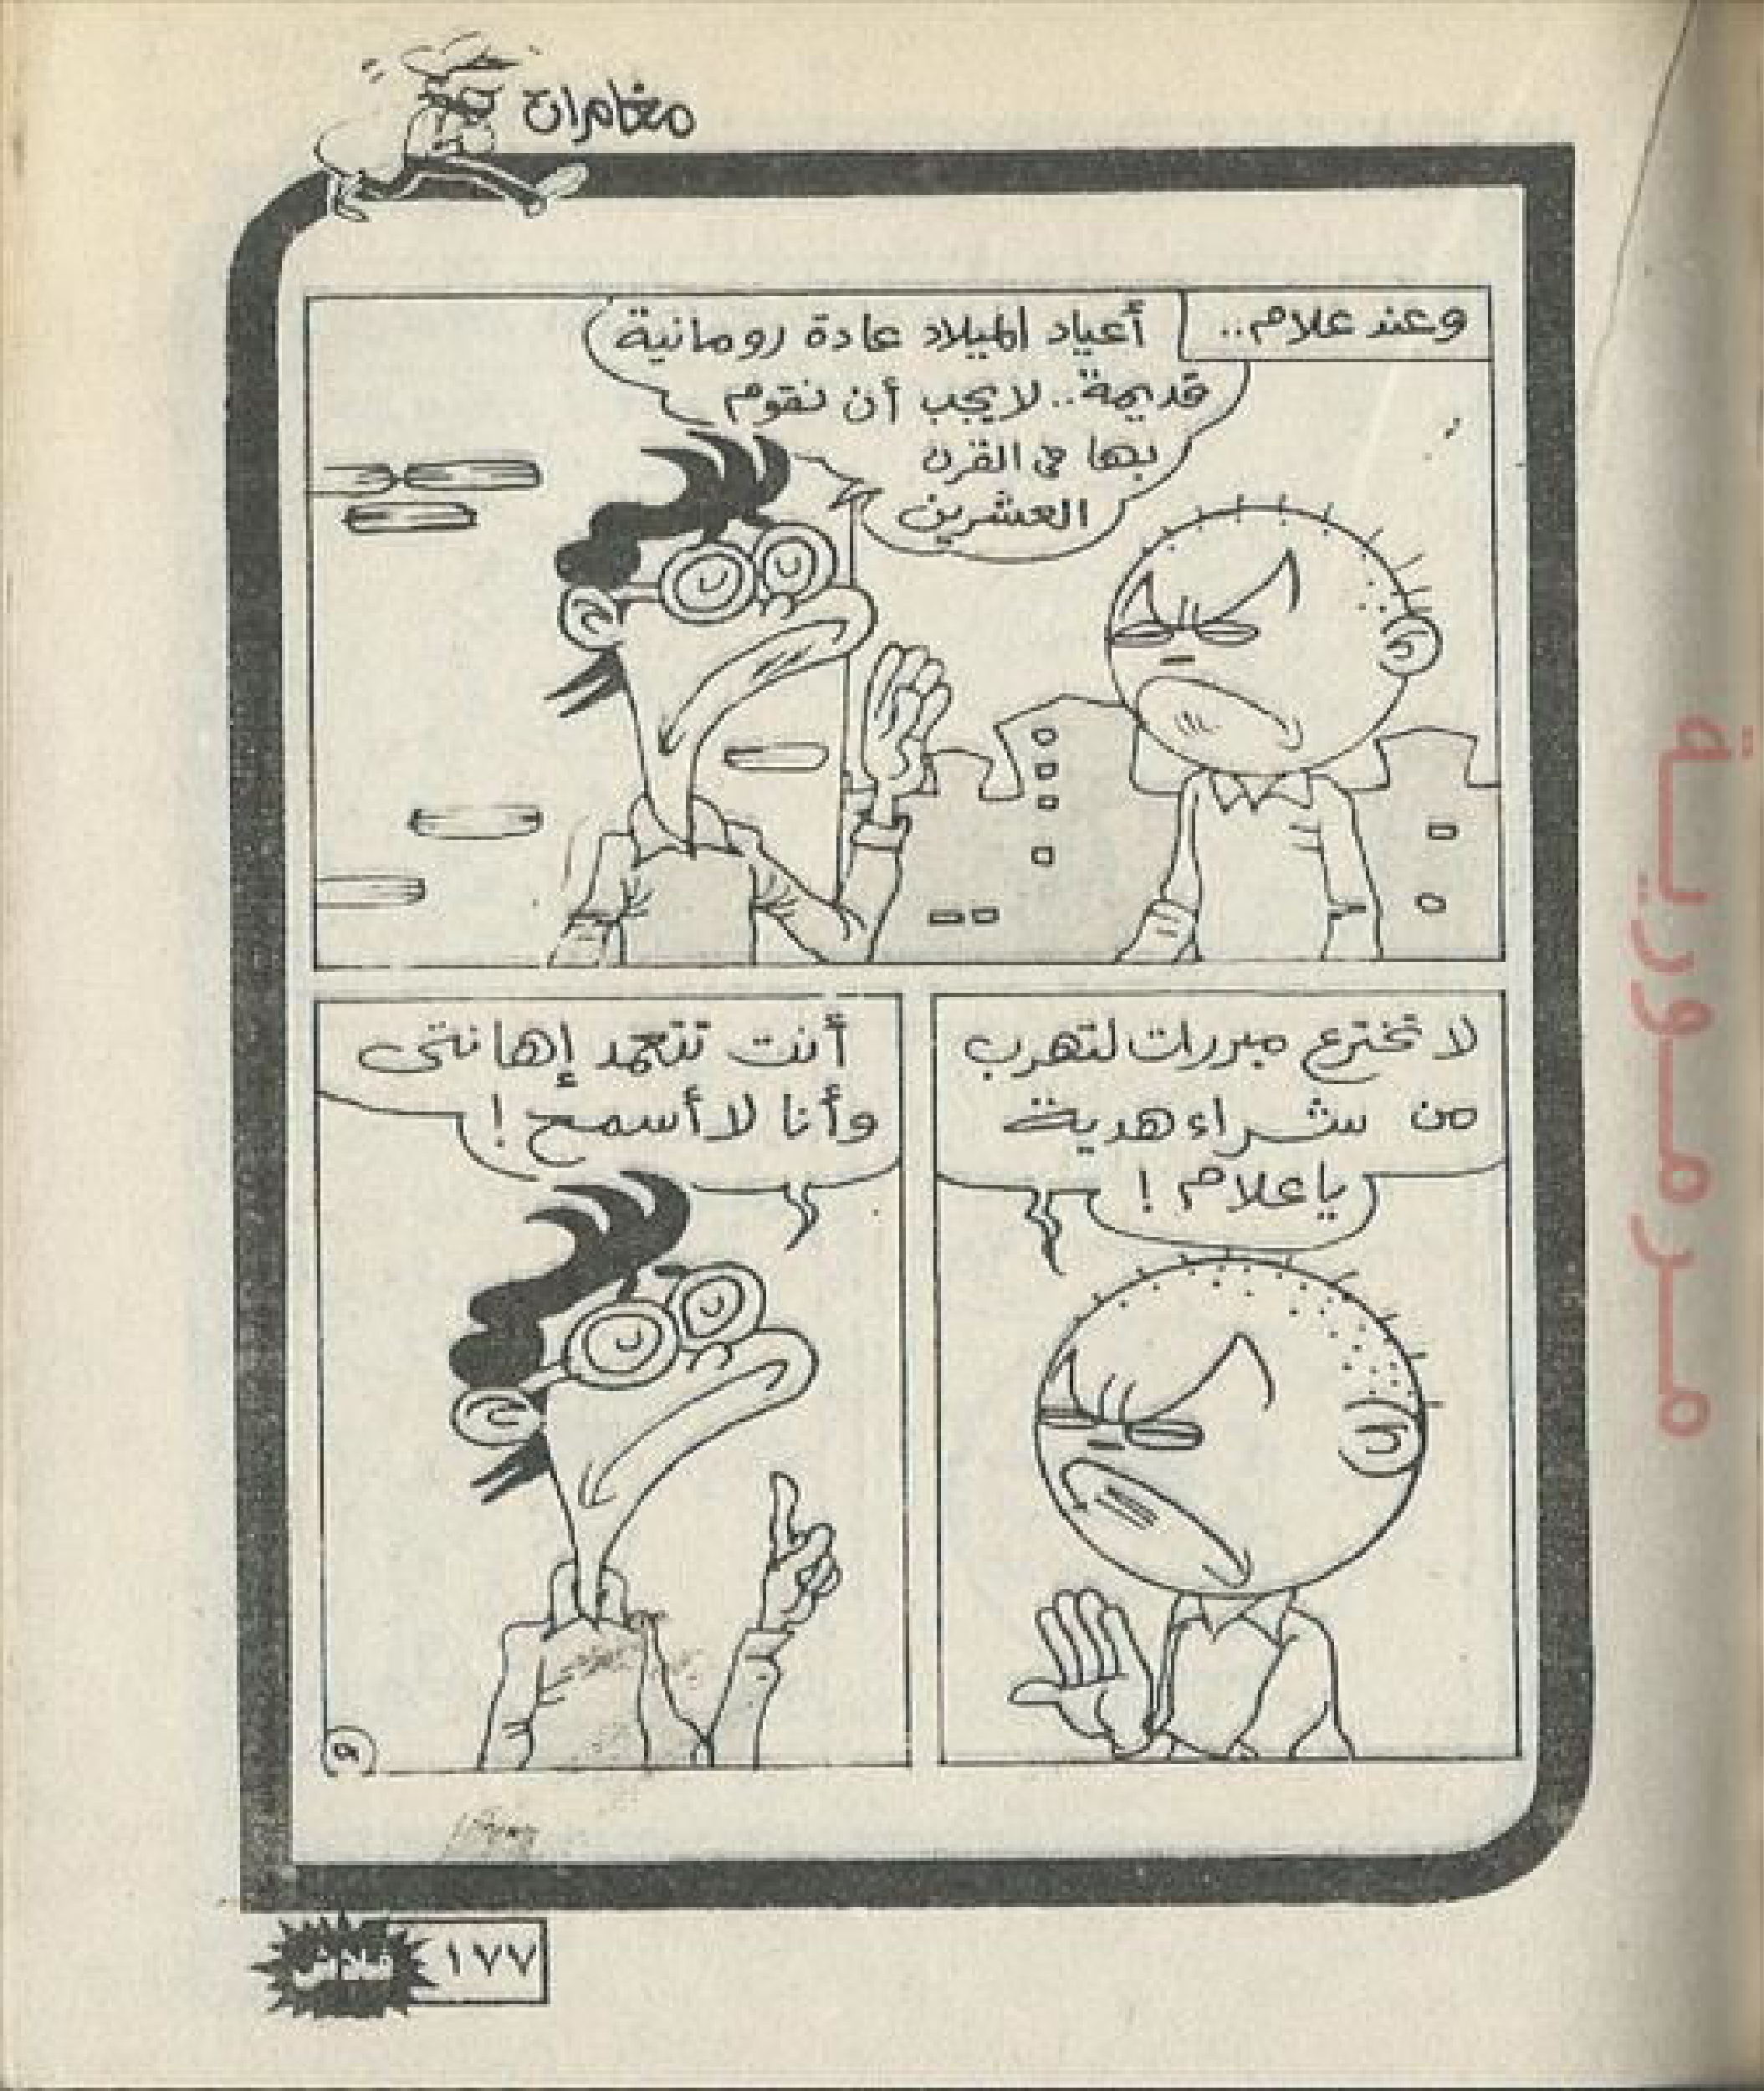 مغامرات
وعند علام..
أعياد الميلاد عادة رومانية
قديمة.. لا يجب أن نقوم
بها في القرن
العشرين
لا تخترع مبررات لتهرب
من شراء هدية
يا علام !
أنت تتعمد إهانتى
وأنا لا أسمح !
٥
١٧٧
فلاش
مرمورية